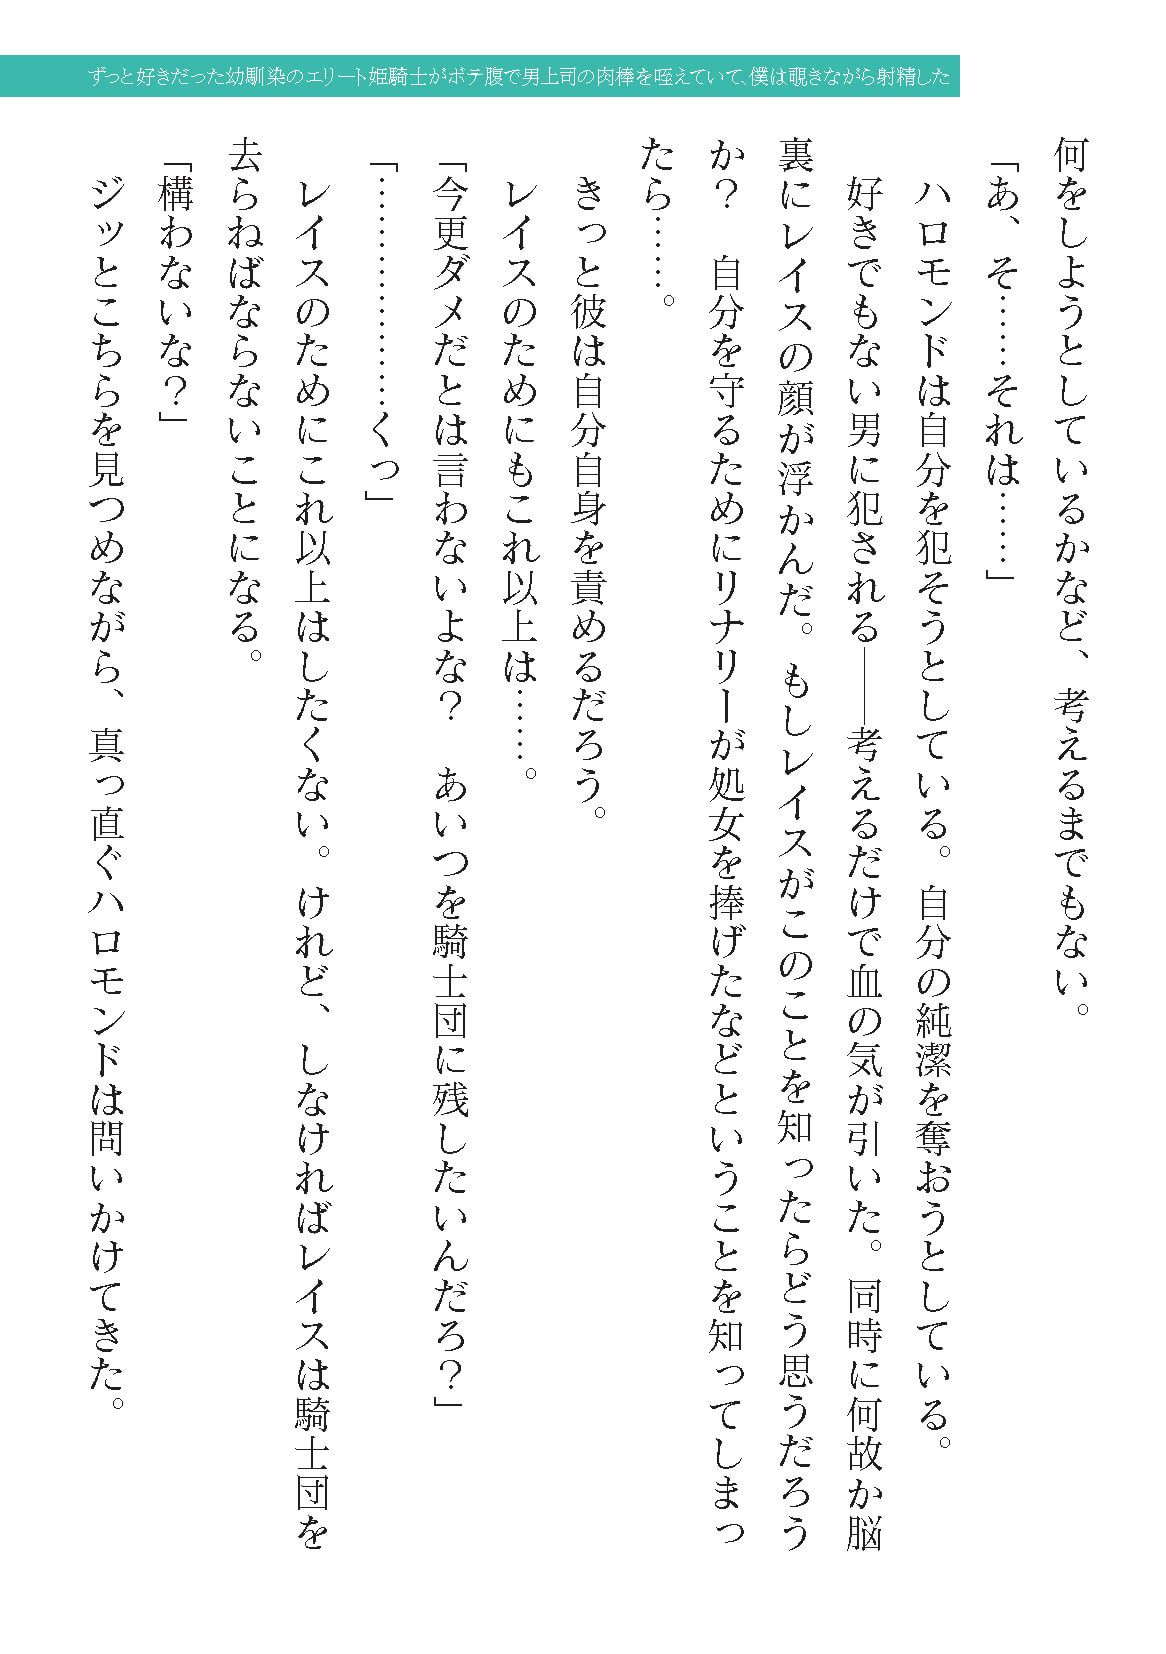 ずっと好きだった幼馴染のエリート姫騎士がボテ腹で男上司の肉棒を咥えていて、僕は覗きながら射精した
何をしようとしているかなど、考えるまでもない。
「あ、そ……それは……」
ハロモンドは自分を犯そうとしている。自分の純潔を奪おうとしている。
好きでもない男に犯される――考えるだけで血の気が引いた。同時に何故か脳
裏にレイスの顔が浮かんだ。もしレイスがこのことを知ったらどう思うだろう
か？　自分を守るためにリナリーが処女を捧げたなどということを知ってしまっ
たら……。
きっと彼は自分自身を責めるだろう。
レイスのためにもこれ以上は……。
「今更ダメだとは言わないよな？　あいつを騎士団に残したいんだろ？」
「………………くっ」
レイスのためにこれ以上はしたくない。けれど、しなければレイスは騎士団を
去らねばならないことになる。
「構わないな？」
ジッとこちらを見つめながら、真っ直ぐハロモンドは問いかけてきた。